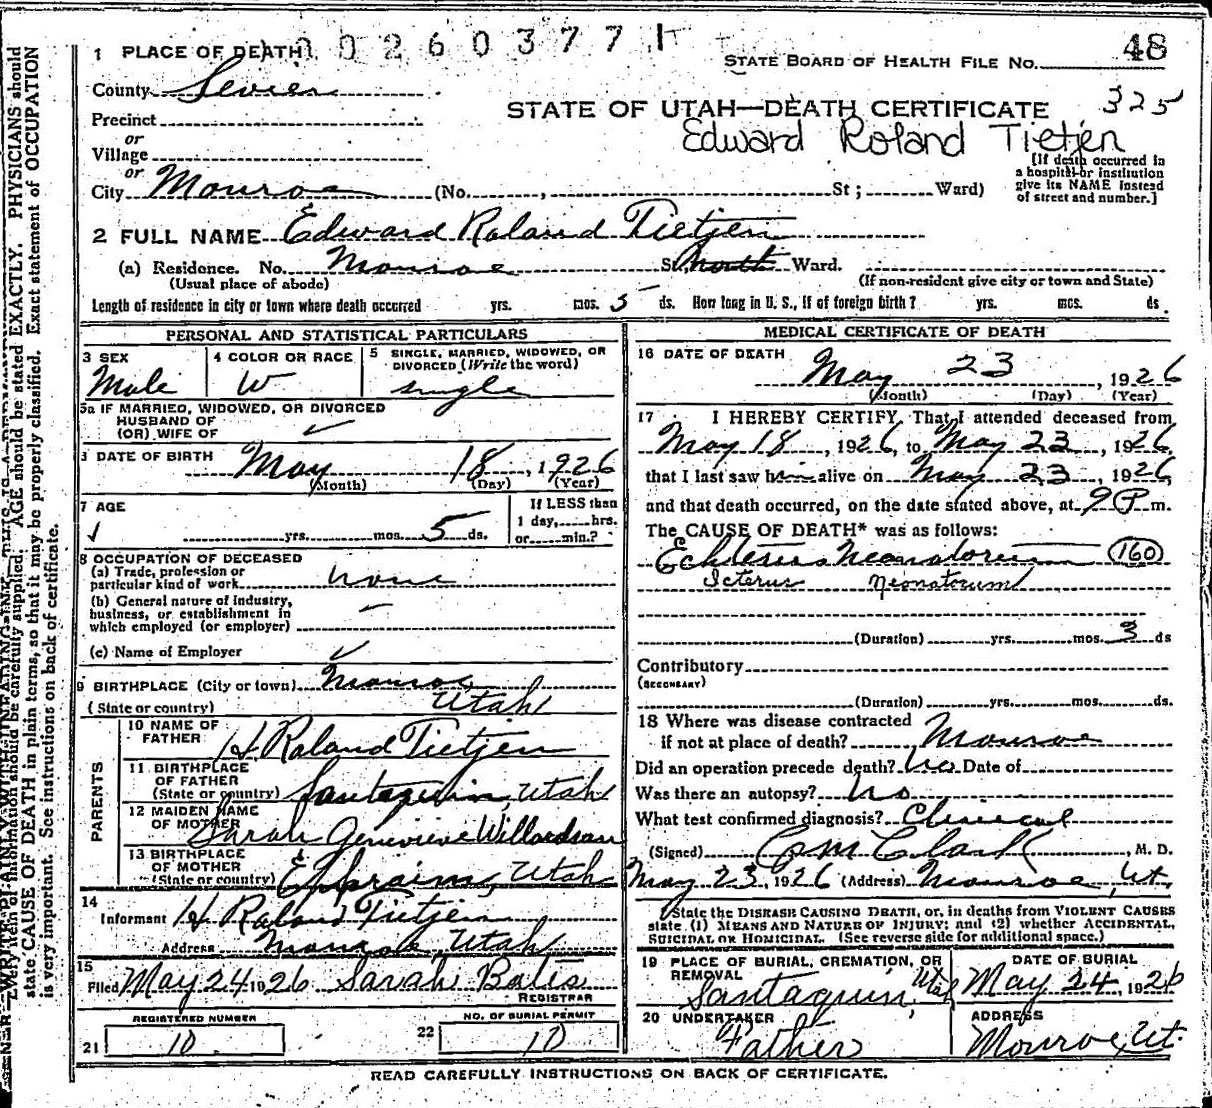 002603771
48
1 PLACE OF DEATH
STATE BOARD OF HEALTH FILE NO.
County Sevier
STATE OF UTAH—DEATH CERTIFICATE 325
Edward Roland Tietjen
Precinct
or
Village
or
City Monroe (No. , St ; Ward)
[If death occurred in
a hospital or institution
give its NAME instead
of street and number.]
2 FULL NAME Edward Roland Tietjen
(a) Residence. No. Monroe S North Ward.
(Usual place of abode) (If non-resident give city or town and State)
Length of residence in city or town where death occurred yrs. mos. 5 ds. How long in U. S., if of foreign birth? yrs. mos. ds.
PERSONAL AND STATISTICAL PARTICULARS
3 SEX
Male
4 COLOR OR RACE
W
5 SINGLE, MARRIED, WIDOWED, OR
DIVORCED (Write the word)
single
5a IF MARRIED, WIDOWED, OR DIVORCED
HUSBAND OF
(OR) WIFE OF
DATE OF BIRTH
May 18, 1926
(Month) (Day) (Year)
7 AGE
yrs. mos. 5 ds.
If LESS than
1 day, hrs.
or min.?
8 OCCUPATION OF DECEASED
(a) Trade, profession or
particular kind of work none
(b) General nature of industry,
business, or establishment in
which employed (or employer)
(c) Name of Employer
9 BIRTHPLACE (City or town) Monroe
(State or country) Utah
PARENTS
10 NAME OF
FATHER H Roland Tietjen
11 BIRTHPLACE
OF FATHER
(State or country) Santaquin, Utah
12 MAIDEN NAME
OF MOTHER Sarah Genevieve Willardson
13 BIRTHPLACE
OF MOTHER
(State or country) Ephraim, Utah
14
Informant H Roland Tietjen
Address Monroe, Utah
15
Filed May 24 1926 Sarah Bates
REGISTRAR
REGISTERED NUMBER
21 10
NO. OF BURIAL PERMIT
22 10
MEDICAL CERTIFICATE OF DEATH
16 DATE OF DEATH
May 23, 1926
(Month) (Day) (Year)
17 I HEREBY CERTIFY, That I attended deceased from
May 18, 1926, to May 23, 1926,
that I last saw him alive on May 23, 1926,
and that death occurred, on the date stated above, at 9 P m.
The CAUSE OF DEATH* was as follows:
Neonatorum 160
Icterus Neonatorum
(Duration) yrs. mos. 3 ds
Contributory
(SECONDARY)
(Duration) yrs. mos. ds.
18 Where was disease contracted
if not at place of death? Monroe
Did an operation precede death? No Date of
Was there an autopsy? No
What test confirmed diagnosis? Clinical
(Signed) Clark, M. D.
May 23, 1926 (Address) Monroe, Ut.
State the DISEASE CAUSING DEATH, or, in deaths from VIOLENT CAUSES
state (1) MEANS AND NATURE OF INJURY; and (2) whether ACCIDENTAL,
SUICIDAL OR HOMICIDAL. (See reverse side for additional space.)
19 PLACE OF BURIAL, CREMATION, OR
REMOVAL
Santaquin, Utah
DATE OF BURIAL
May 24, 1926
20 UNDERTAKER
Father
ADDRESS
Monroe, Ut.
READ CAREFULLY INSTRUCTIONS ON BACK OF CERTIFICATE.
AGE should be stated EXACTLY. PHYSICIANS should
state CAUSE OF DEATH in plain terms, so that it may be properly classified. Exact statement of OCCUPATION
is very important. See instructions on back of certificate.